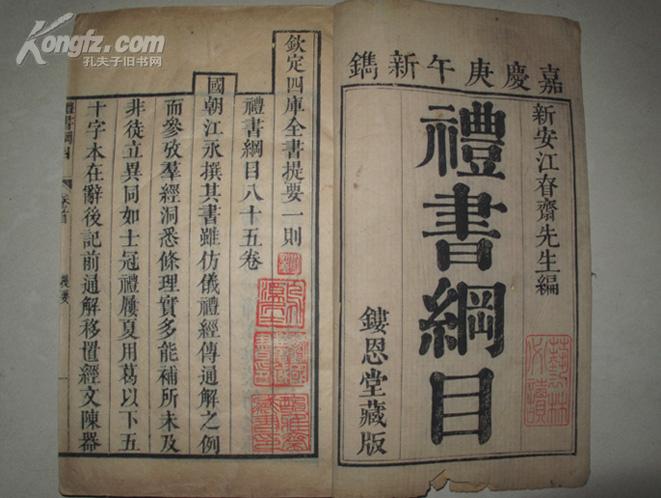 嘉慶庚午新鐫
新安江眘齋先生編
禮書綱目
鏤恩堂藏版
藝林必讀
欽定四庫全書提要一則
禮書綱目八十五卷
國朝江永撰其書雖仿儀禮經傳通解之例
而參攷羣經洞悉條理實多能補所未及
非徒立異同如士冠禮屨夏用葛以下五
十字本在辭後記前通解移置經文陳器
禮書綱目
提要
Kongfz.com
孔夫子旧书网